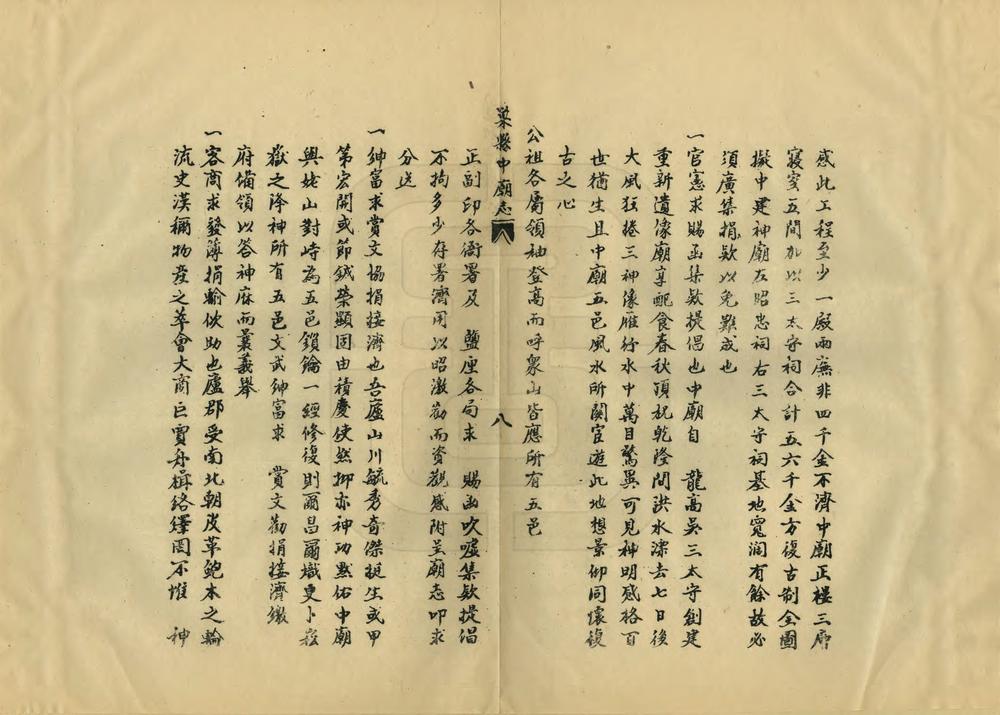 感此工程至少一殿兩廡非四千金不濟中廟正樓三層
寢室五間加以三太守祠合計五六千金方復古制全圖
擬中建神廟左昭忠祠右三太守祠基地寬濶有餘故必
須廣集捐欵以免難成也
一官憲求賜函集欵提倡也中廟自　龍高吳三太守創建
重新遺像廟享配食春秋頂祝乾隆間洪水漂去七日後
大風狂捲三神像雁行水中萬目驚異可見神明感格百
世猶生且中廟五邑風水所關宦遊此地想景仰同懷復
古之心
公祖各屬領袖登高而呼衆山皆應所有五邑
巢縣中廟志　八
正副印各衙署及　鹽厘各局求　賜函吹噓集欵提倡
不拘多少存署濟用以昭激勸而資觀感附呈廟志叩求
分送
一紳富求賞文協捐接濟也吾廬山川毓秀奇傑挺生或甲
第宏開或節鉞榮顯固由積慶使然抑亦神功默佑中廟
與姥山對峙為五邑鎖鑰一經修復則爾昌爾熾更卜崧
嶽之降神所有五邑文武紳富求　賞文勸捐接濟繳
府備領以答神庥而襄義舉
一客商求發簿捐輸佽助也廬郡受南北朝皮革鮑本之輪
流史漢稱物產之萃會大商巨賈舟楫絡繹罔不惟　神